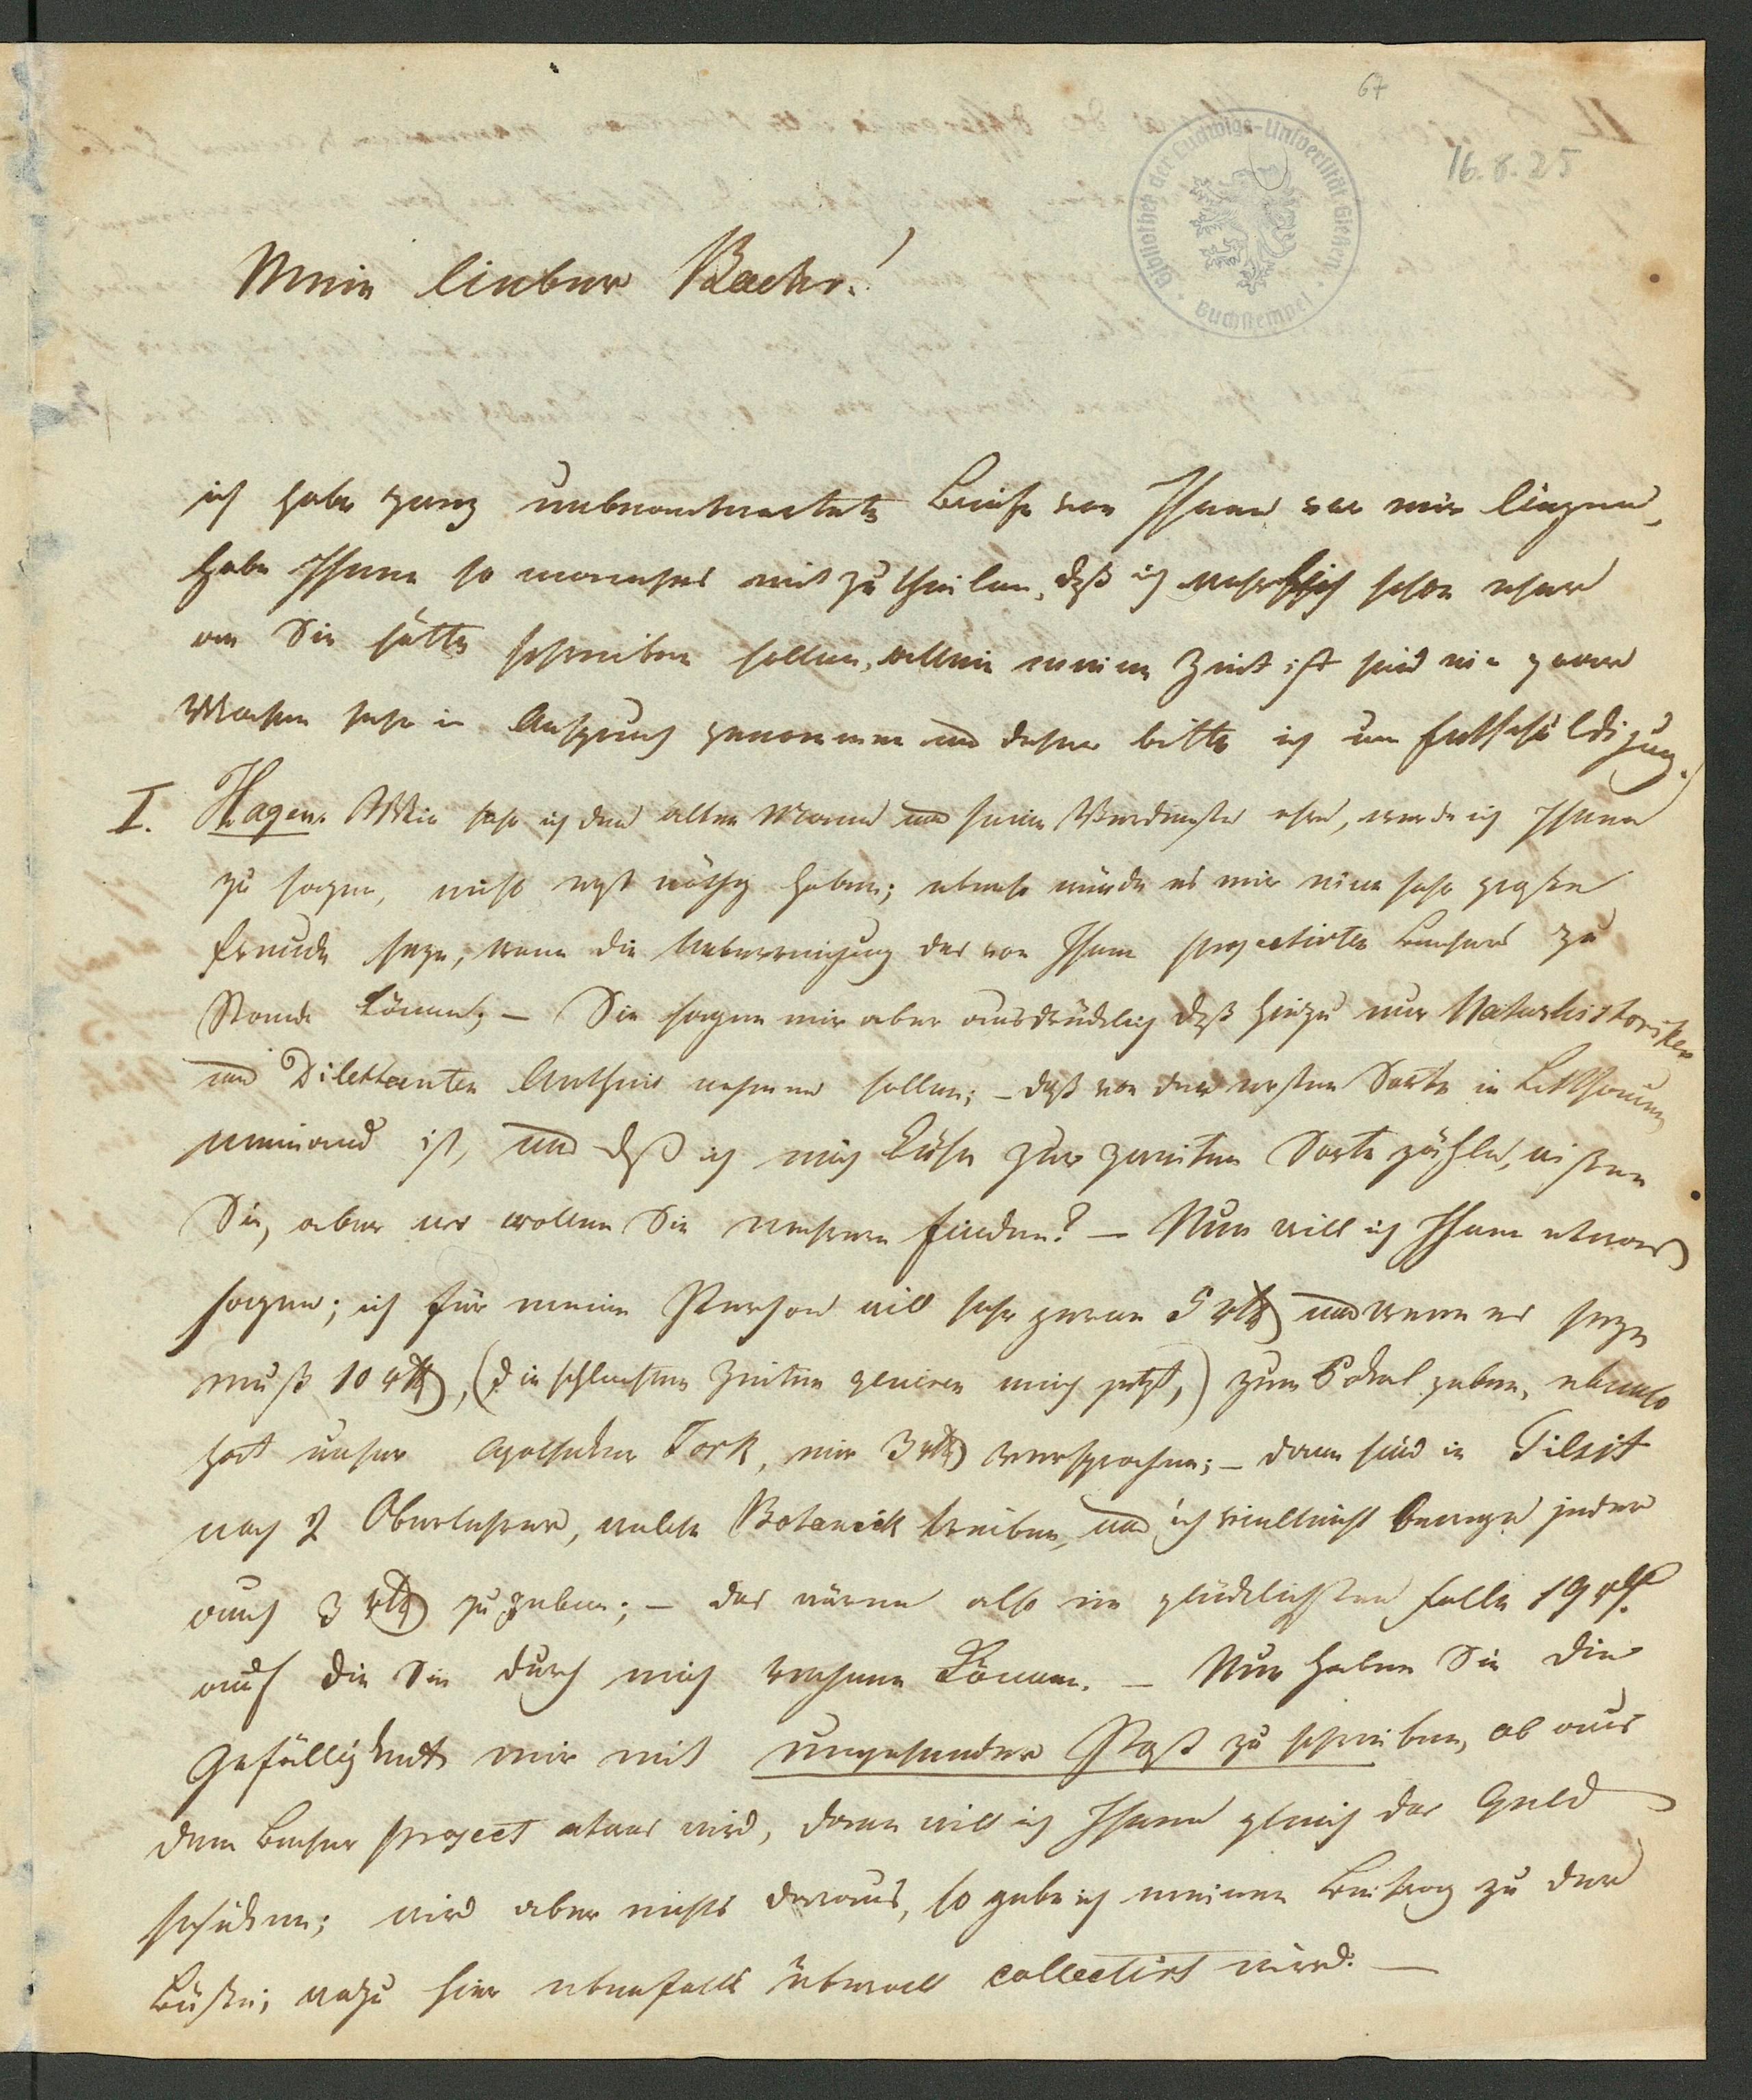 67
16.8.25
Bibliothek der Ludwigs-Universität Gießen
Buchstempel
Mein lieber Baer!
ich habe ganz unbeantwortete Briefe von Ihnen vor mir liegen,
habe Ihnen so manches mitzutheilen, daß ich schon eher
an Sie hätte schreiben sollen, allein meine Zeit ist seit ein paar
Wochen sehr in Anspruch genommen und daher bitte ich um Entschuldigung.
I. Hagen. Wie sehr ich den alten Mann und seine Verdienste ehre, werde ich Ihnen
zu sagen, nicht erst nöthig haben; ebenso würde es mir eine sehr große
Freude seyn, wenn die Ueberreichung des von Ihnen projectirten Bechers zu
Stande kömmt; – Sie sagen mir aber ausdrücklich daß hiezu nur Naturhistoriker
und Dilettanten Antheil nehmen sollen; – daß von der ersten Sorte in Litthauen
niemand ist, und daß ich mich kühn zur zweiten Sorte zähle, wissen
Sie, aber wo wollen Sie mehrere finden? – Nun will ich Ihnen etwas
sagen; ich für meine Person will sehr gerne 5 rth und wenn es seyn
muß 10 rth, (die schlechten Zeiten geniren mich jetzt,) zum Pokal geben, ebenso
hat unser Apotheker Tork, mir 3 rth versprochen; – dann sind in Tilsit
noch 2 Oberlehrer, welche Botanick treiben, und ich vielleicht bewege jeder
auch 3 rth zu geben; – das wären also im glücklichsten Falle 19 rth.
auf die Sie durch mich rechnen können. – Nun haben Sie die
Gefälligkeit mir mit umgehender Post zu schreiben, ob aus
dem Becher project etwas wird, dann will ich Ihnen gleich das Geld
schicken; wird aber nichts daraus, so gebe ich meinen Beitrag zu der
Büste; wozu hier ebenfalls überall collectirt wird. –